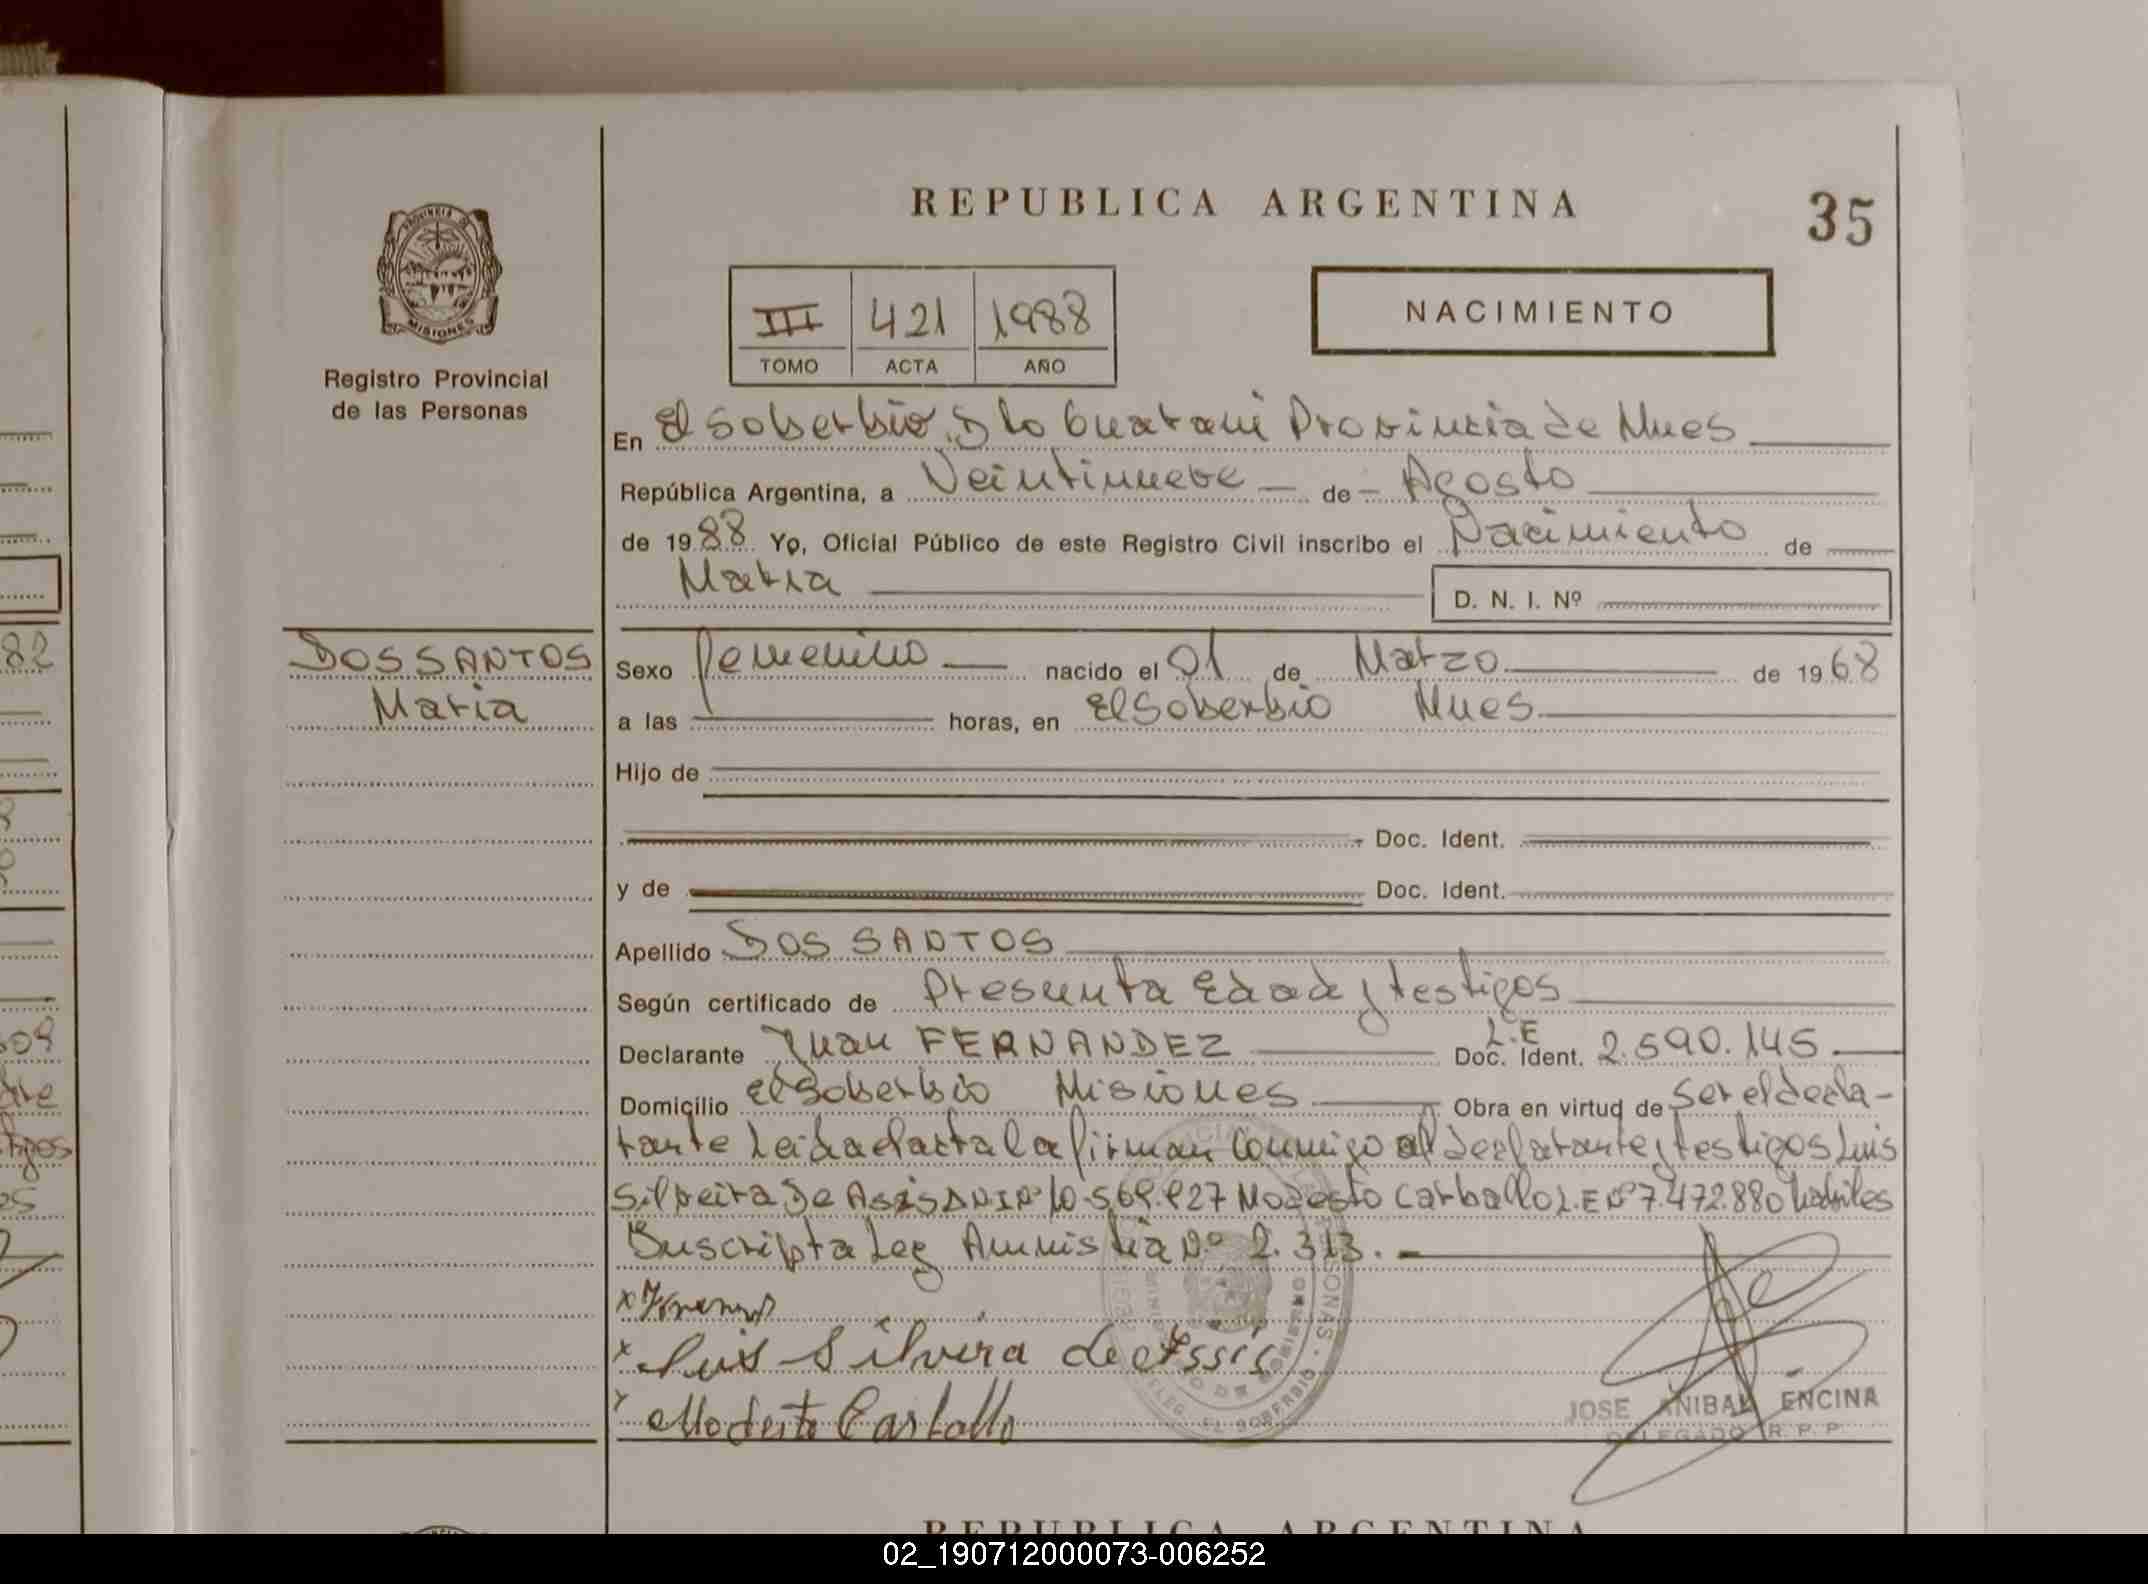 REPUBLICA ARGENTINA
35
PROVINCIA DE MISIONES
Registro Provincial
de las Personas
III 421 1988
TOMO ACTA AÑO
NACIMIENTO
En El Soberbio, D to Guarani Provincia de Mnes
República Argentina, a Veintinueve de Agosto
de 1988 Yo, Oficial Público de este Registro Civil inscribo el Nacimiento de
Maria
D. N. I. Nº
DOS SANTOS
Maria
Sexo femenino nacido el 01 de Marzo de 1968
a las horas, en El Soberbio Mnes
Hijo de
Doc. Ident.
y de Doc. Ident.
Apellido DOS SANTOS
Según certificado de Presunta Edad y testigos
Declarante Juan FERNANDEZ Doc. Ident. L.E 2.590.145
Domicilio El Soberbio Misiones Obra en virtud de ser el decla-
rante Leida el acta la firman conmigo el declarante y testigos Luis
Silveira De Asis DNI Nº Modesto Carballo L.E Nº 7.472.880 habiles
Buscripta Ley Amnistia Nº 2.313.
x
x Luis Silvira de Assis
x Modesto Carballo
DELEG. EL SOBERBIO
JOSE ANIBAL ENCINA
DELEGADO R. P. P.
REPUBLICA ARGENTINA
02_190712000073-006252